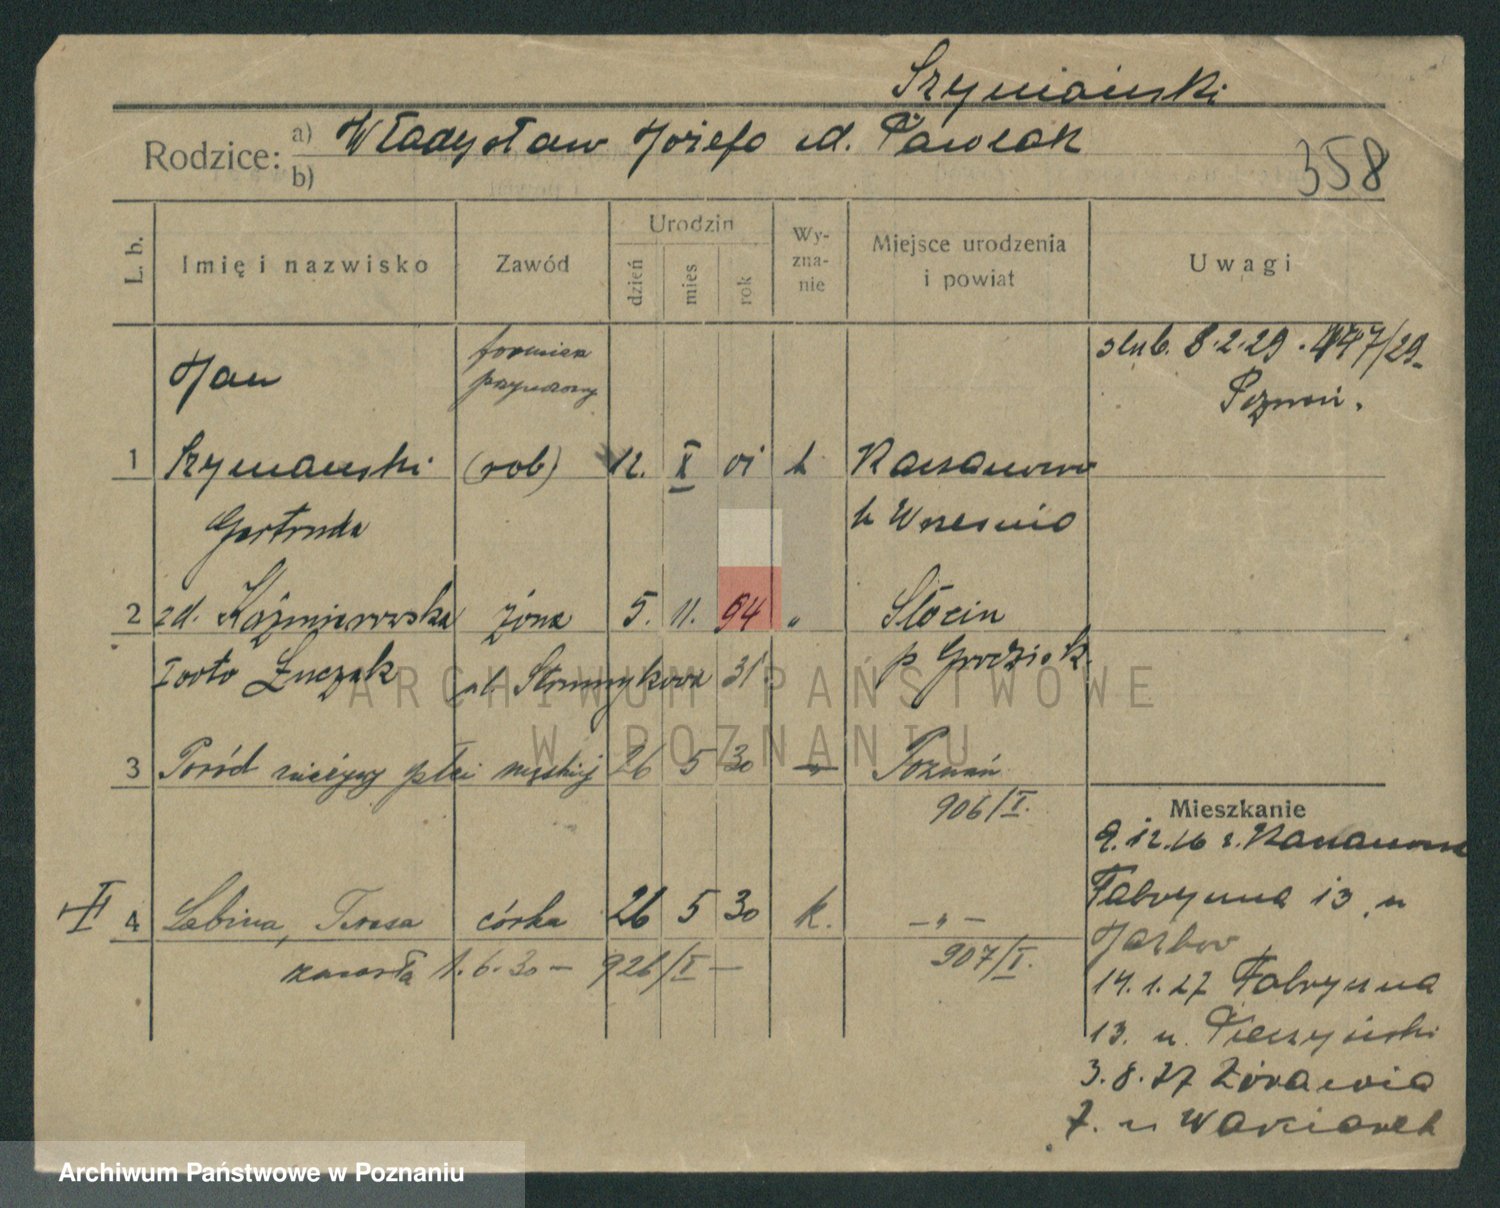 Szymański
Rodzice: a) Władysław Józefa zd. Pawlak
b)
358
L. b. Imię i nazwisko Zawód Urodzin dzień mies rok Wy-zna-nie Miejsce urodzenia i powiat Uwagi
Jan
ślub. 8.2.29. 447/29
Poznań.
1 Szymański (rob) 12. X 01 k
p Września
Gertruda
2 zd. Kaźmierowska żona 5. 11. 94 " Słocin
p Grodzisk.
Łuczak 31
3 Poród nieżywy płci męskiej 26 5 30 Poznań
906/I.
Mieszkanie
9.12.26
Fabryczna 13. u
4 Sabina, Teresa córka 26 5 30 k. -„-
zmarła 1.6.30 - 926/I -
907/I.
14.1.27 Fabryczna
13. u.
3.8.27 Żórawia
7. u
ARCHIWUM PAŃSTWOWE
W POZNANIU
Archiwum Państwowe w Poznaniu